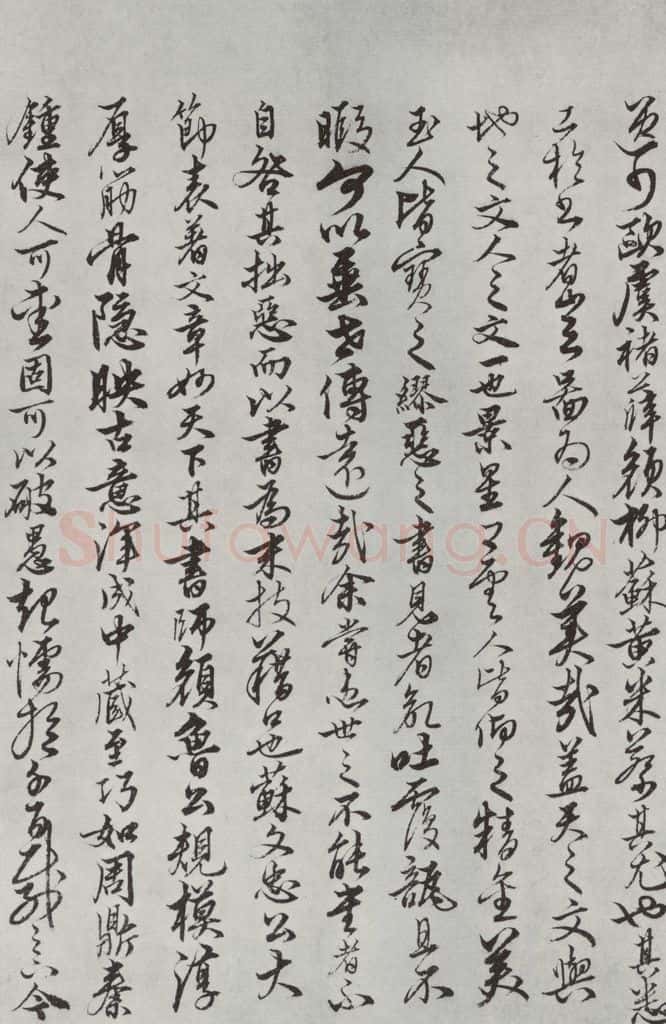 可歐虞褚薛顏柳蘇黃米蔡其尤也其
工於書者豈啚為人觀美哉蓋天之文與
地之文人之文一也景星卿雲人皆仰之精金美
玉人皆寶之繆惡之書見者欲吐覆瓿且不
暇何以垂世傳遠哉余嘗怪世之不能書者不
自咎其拙惡而以書為末技藉口也蘇文忠公大
節表著文章妙天下其書師顏魯公規模淳
厚筋骨隱映古意渾成中藏至巧如周鼎秦
鍾使人可重固可以破愚起懦於千百載之下今
Shufawang.CN